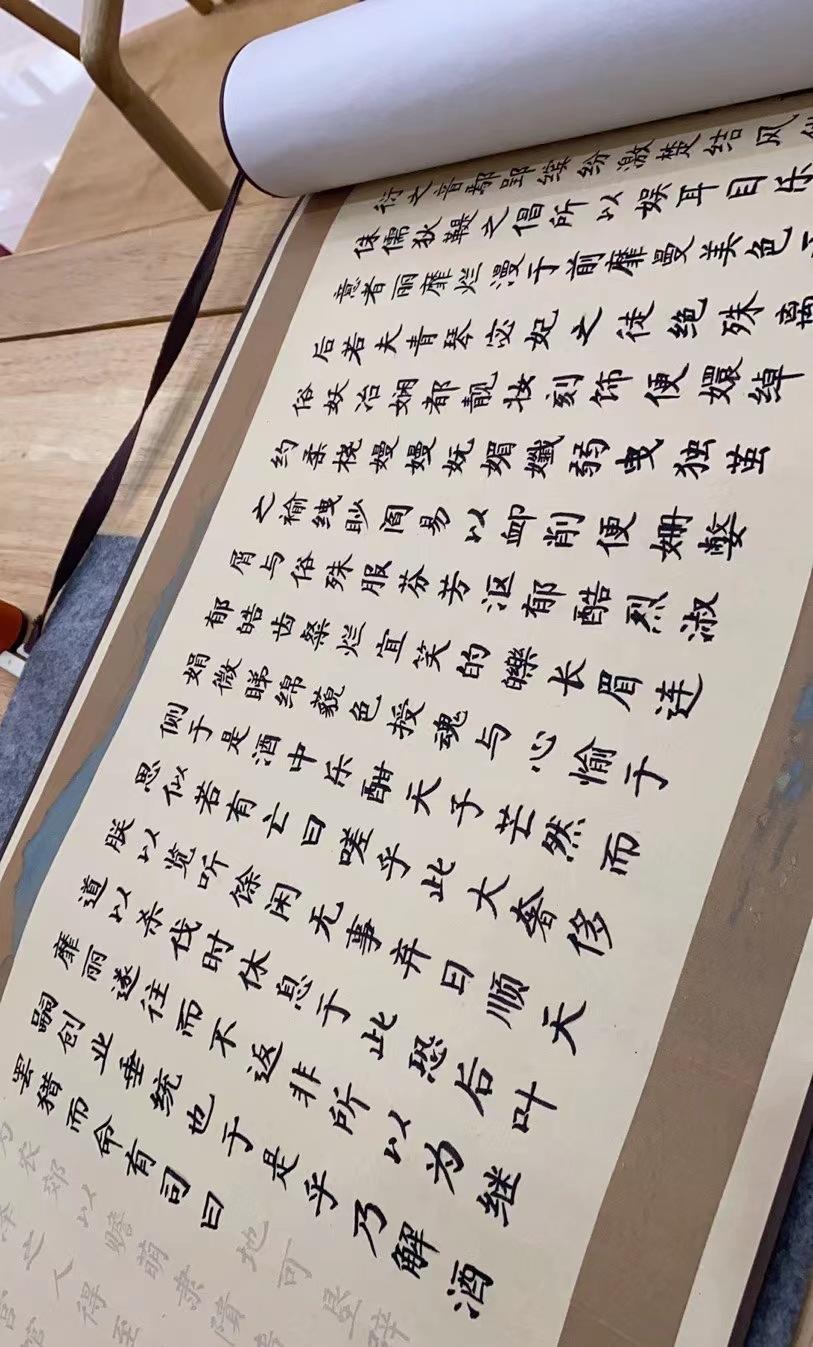 衍之音鄢郢缤纷激楚结风
侏儒狄鞮之倡所以娱耳目乐
意者丽靡烂漫于前靡曼美色于
后若夫青琴宓妃之徒绝殊离
俗妖冶娴都靓妆刻饰便嬛绰
约柔桡嫚嫚妩媚孅弱曳独茧
之褕绁眇阎易以卹削便姗嫳
屑与俗殊服芬芳沤郁酷烈淑
郁皓齿粲烂宜笑的皪长眉连
娟微睇绵藐色授魂与心愉于
侧于是酒中乐酣天子芒然而
思似若有亡曰嗟乎此大奢侈
朕以览听馀闲无事弃日顺天
道以杀伐时休息于此恐后叶
靡丽遂往而不返非所以为继
嗣创业垂统也于是乎乃解酒
罢猎而命有司曰地可垦辟
为农郊以赡萌隶隤
之人得至
宫馆